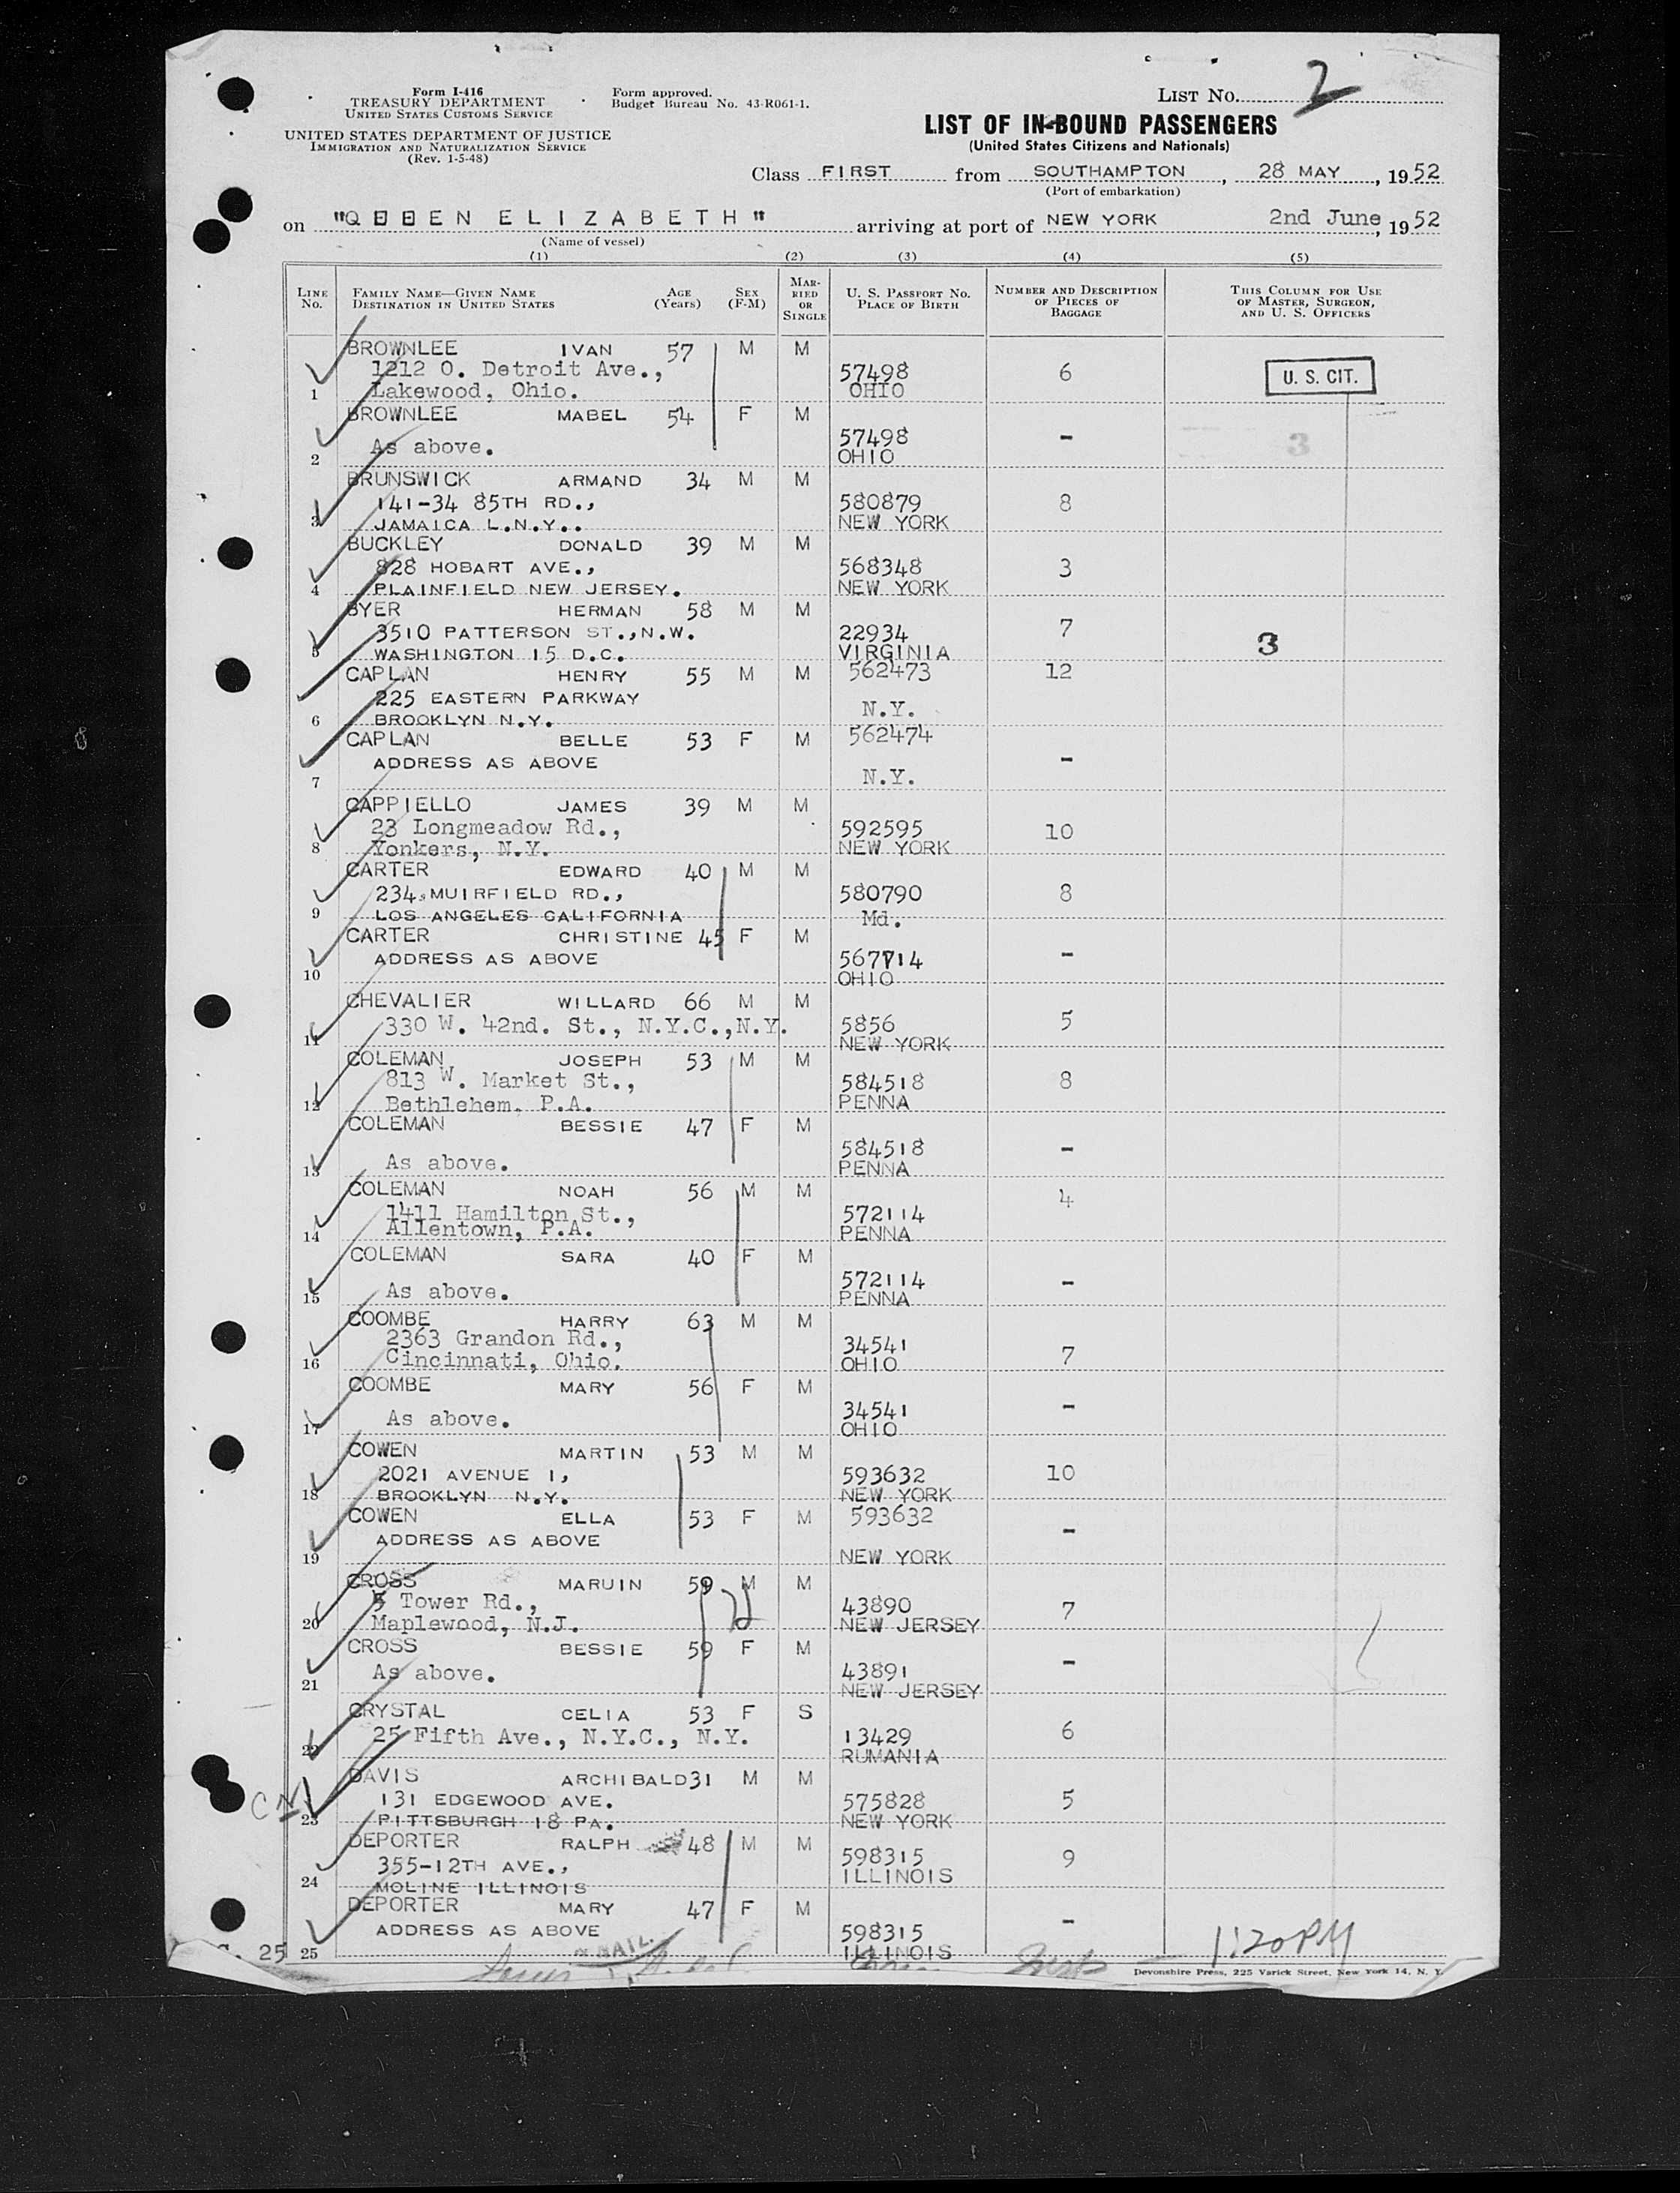 Form I-416
TREASURY DEPARTMENT
UNITED STATES CUSTOMS SERVICE
UNITED STATES DEPARTMENT OF JUSTICE
IMMIGRATION AND NATURALIZATION SERVICE
(Rev. 1-5-48)
Form approved.
Budget Bureau No. 43-R061-1.
LIST NO. 2
LIST OF IN-BOUND PASSENGERS
(United States Citizens and Nationals)
Class FIRST from SOUTHAMPTON, 28 MAY, 1952
(Port of embarkation)
on "QUEEN ELIZABETH" arriving at port of NEW YORK 2nd June, 1952
(Name of vessel)
(1) (2) (3) (4) (5)
LINE NO. FAMILY NAME—GIVEN NAME DESTINATION IN UNITED STATES AGE (Years) SEX (F-M) MARRIED OR SINGLE U. S. PASSPORT NO. PLACE OF BIRTH NUMBER AND DESCRIPTION OF PIECES OF BAGGAGE THIS COLUMN FOR USE OF MASTER, SURGEON, AND U. S. OFFICERS
BROWNLEE IVAN 57 M M
1212 O. Detroit Ave., 57498 6 U. S. CIT.
1 Lakewood, Ohio. OHIO
BROWNLEE MABEL 54 F M
As above. 57498 - 3
2 OHIO
BRUNSWICK ARMAND 34 M M
141-34 85TH RD., 580879 8
3 JAMAICA L.N.Y.. NEW YORK
BUCKLEY DONALD 39 M M
828 HOBART AVE., 568348 3
4 PLAINFIELD NEW JERSEY. NEW YORK
BYER HERMAN 58 M M
3510 PATTERSON ST.,N.W. 22934 7 3
5 WASHINGTON 15 D.C. VIRGINIA
CAPLAN HENRY 55 M M 562473 12
225 EASTERN PARKWAY N.Y.
6 BROOKLYN N.Y.
CAPLAN BELLE 53 F M 562474
ADDRESS AS ABOVE -
7 N.Y.
CAPPIELLO JAMES 39 M M
23 Longmeadow Rd., 592595 10
8 Yonkers, N.Y. NEW YORK
CARTER EDWARD 40 M M
234 MUIRFIELD RD., 580790 8
9 LOS ANGELES CALIFORNIA Md.
CARTER CHRISTINE 45 F M
ADDRESS AS ABOVE 567714 -
10 OHIO
CHEVALIER WILLARD 66 M M
330 W. 42nd. St., N.Y.C.,N.Y. 5856 5
11 NEW YORK
COLEMAN JOSEPH 53 M M
813 W. Market St., 584518 8
12 Bethlehem, P.A. PENNA
COLEMAN BESSIE 47 F M
584518 -
13 As above. PENNA
COLEMAN NOAH 56 M M 4
1411 Hamilton St., 572114
14 Allentown, P.A. PENNA
COLEMAN SARA 40 F M
572114 -
15 As above. PENNA
COOMBE HARRY 63 M M
2363 Grandon Rd., 34541
16 Cincinnati, Ohio. OHIO 7
COOMBE MARY 56 F M
As above. 34541 -
17 OHIO
COWEN MARTIN 53 M M
2021 AVENUE I, 593632 10
18 BROOKLYN N.Y. NEW YORK
COWEN ELLA 53 F M 593632
ADDRESS AS ABOVE -
19 NEW YORK
CROSS MARUIN 59 M M
5 Tower Rd., 43890 7
20 Maplewood, N.J. NEW JERSEY
CROSS BESSIE 59 F M
As above. 43891 -
21 NEW JERSEY
CRYSTAL CELIA 53 F S
25 Fifth Ave., N.Y.C., N.Y. 13429 6
22 RUMANIA
DAVIS ARCHIBALD 31 M M
131 EDGEWOOD AVE. 575828 5
23 PITTSBURGH 18 PA. NEW YORK
DEPORTER RALPH 48 M M
355-12TH AVE., 598315 9
24 MOLINE ILLINOIS ILLINOIS
DEPORTER MARY 47 F M
ADDRESS AS ABOVE 598315 -
25 25 ILLINOIS
1:20 PM
Devonshire Press, 225 Varick Street, New York 14, N. Y.